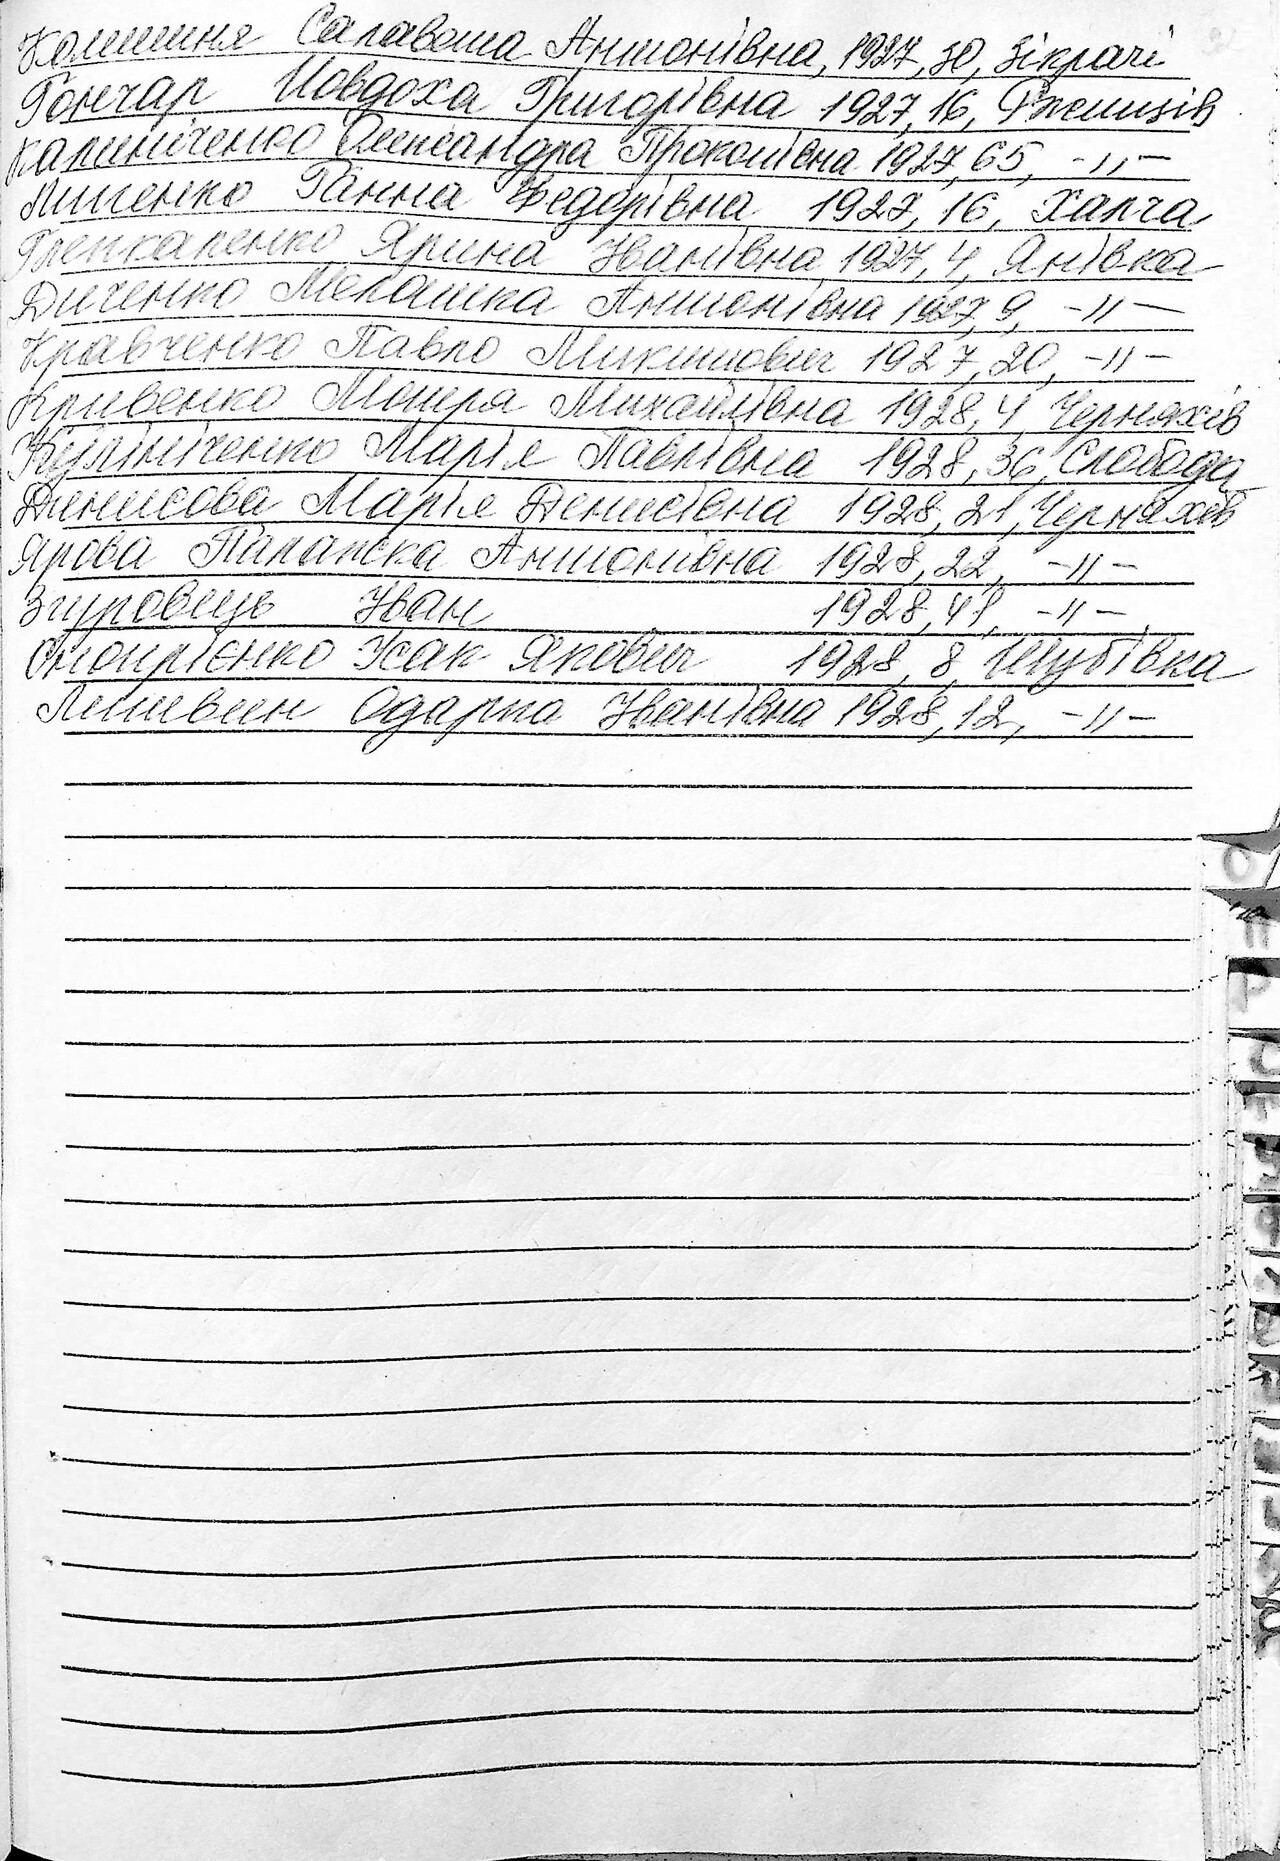 Салавоша Антонівна, 1927, 30, Зікрачі
Гончар Йовдоха Григорівна 1927, 16, Ржищів
Калініченко Олександра Прокопівна 1927, 65, -〃-
Ганна Федорівна 1927, 16, Халча
Ярина Іванівна 1927, 4, Янівка
Диченко Мелашка Антонівна 1927, 9, -〃-
Кравченко Павло Микитович 1927, 20, -〃-
Кривенко Мотря Михайлівна 1928, 4, Черняхів
Кулініченко Марія Павлівна 1928, 36, Слобода
Денисова Марія Денисівна 1928, 21, Черняхів
Ярова Палажка Антонівна 1928, 22, -〃-
Згуровець Іван 1928, 41, -〃-
Онопрієнко Ісак Якович 1928, 8, Шубівка
Литвин Одарка Іванівна 1928, 12, -〃-